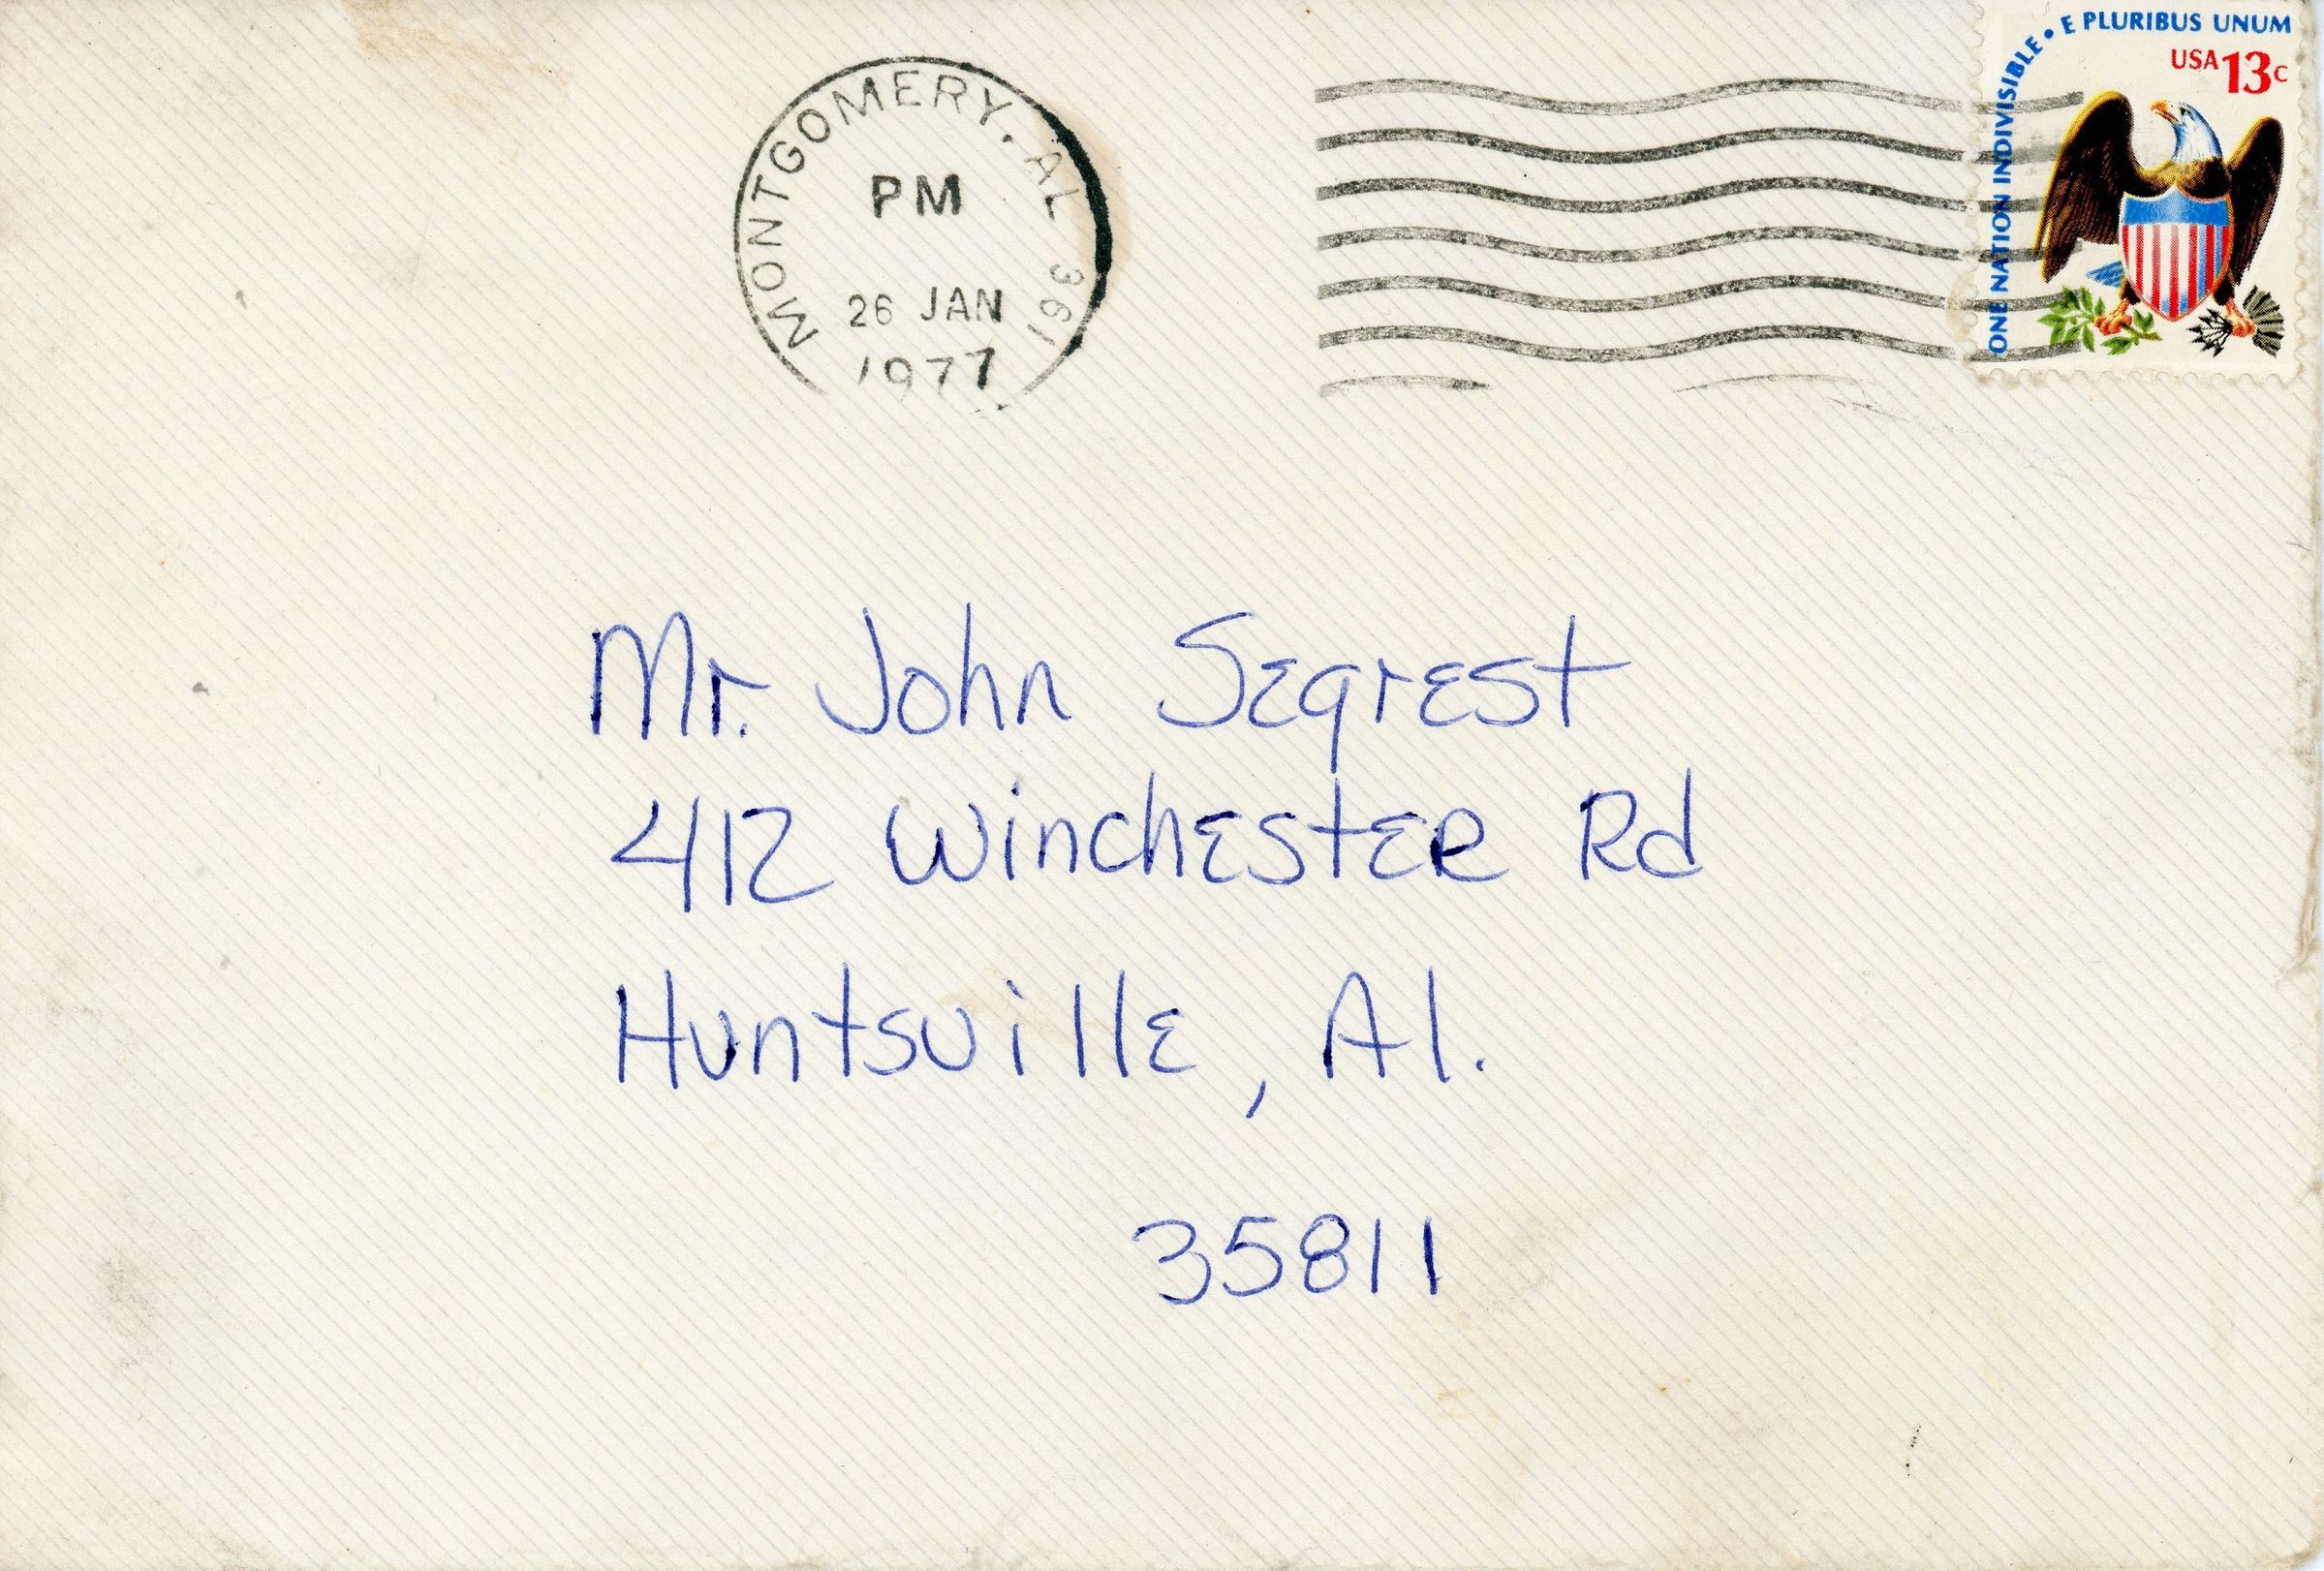 ONE NATION INDIVISIBLE • E PLURIBUS UNUM
USA 13c
MONTGOMERY, AL 361
PM
26 JAN
1977
Mr. John Segrest
412 Winchester Rd
Huntsville, Al.
35811